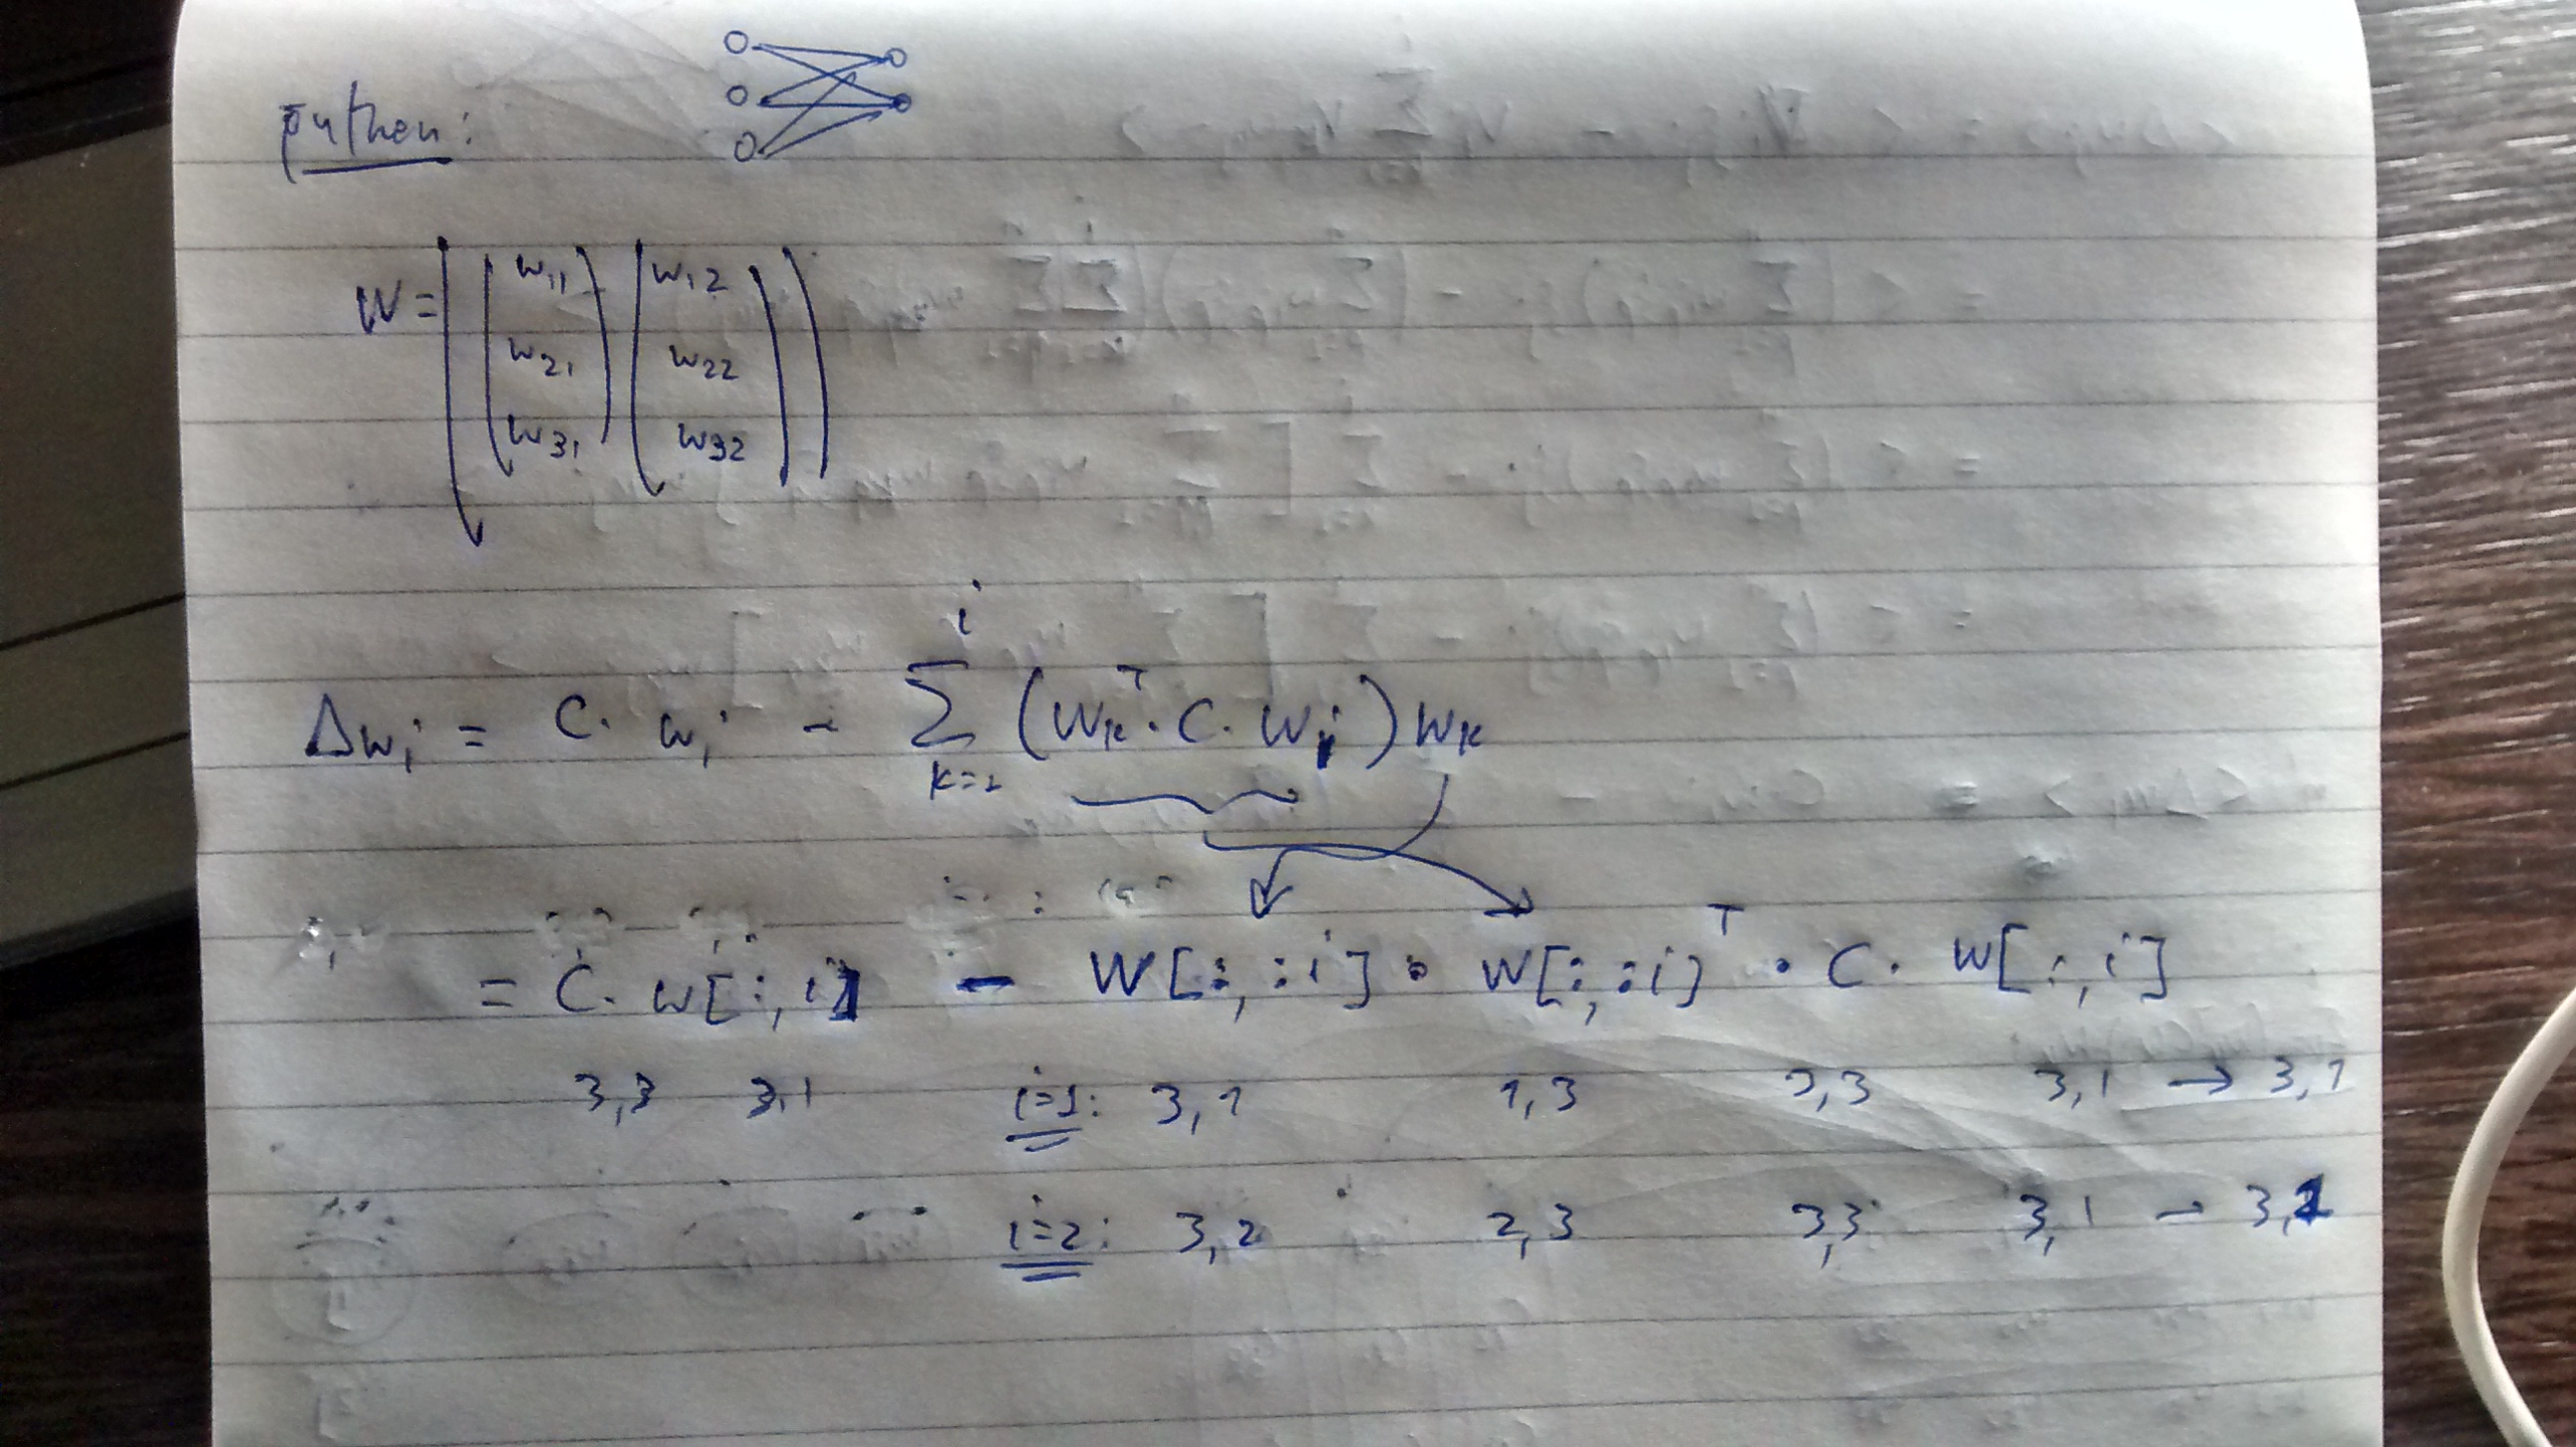 python:
W = ( ( w11 w21 w31 ) ( w12 w22 w32 ) )
Δwi = C · wi - Σ_{k=1}^{i} (wk^T · C · wi) wk
= C · w[:,i] - W[:,:i] · W[:,:i]^T · C · W[:,i]
3,3 3,1 i=1: 3,1 1,3 3,3 3,1 → 3,1
i=2: 3,2 2,3 3,3 3,1 → 3,1